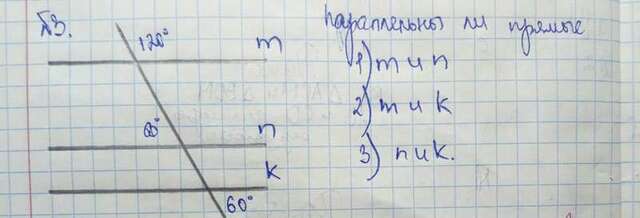 №3.
120°
m
60°
n
k
60°
Параллельны ли прямые
1) m и n
2) m и k
3) n и k.